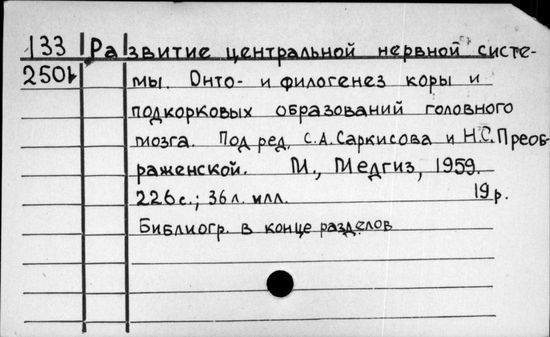 133 Развитие центральной нервной систе-
2501 мы. Онто- и филогенез коры и
подкорковых образований головного
мозга. Под ред. С.А.Саркисова и Н.С.Преоб-
раженской. М., Медгиз, 1959.
226с.; 36л. илл. 19р.
Библиогр. в конце разделов